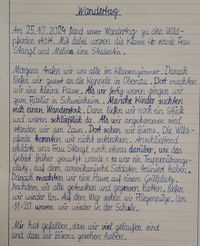 Wandertag
Am 25.10.2024 fand unser Wandertag zu den Wild-
pferden statt. Mit dabei waren die Klasse 4c sowie Frau
Stangl und Melina eine Studentin.
Morgens trafen wir uns alle im Klassenzimmer. Danach
liefen wir zuerst an die Kapelle in Oberndau. Dort machten
wir eine kleine Pause. Als wir fertig waren gingen wir
zum Fidelio in Schweinhausen. Manche Kinder suchten
sich einen Wanderstock. Dann liefen wir noch ein Stück
und waren schließlich da. Als wir angekommen sind
standen wir am Zaun. Dort sahen wir Bisons. Die Wild-
pferde konnten wir nicht entdecken. Anschließend
erklärte uns Frau Stangl noch etwas darüber, wie das
Gebiet früher genutzt wurde: es war ein Truppenübungs-
platz, auf dem amerikanische Soldaten trainiert haben.
Danach machten wir eine Pause auf einem Grillplatz.
Nachdem wir alle getrunken und gegessen hatten, liefen
wir wieder los. Auf dem Weg sahen wir Fliegenpilze. Um
11:20 waren wir wieder in der Schule.
Mir hat gefallen, dass wir viel gelaufen sind
und dass wir Bisons gesehen haben.